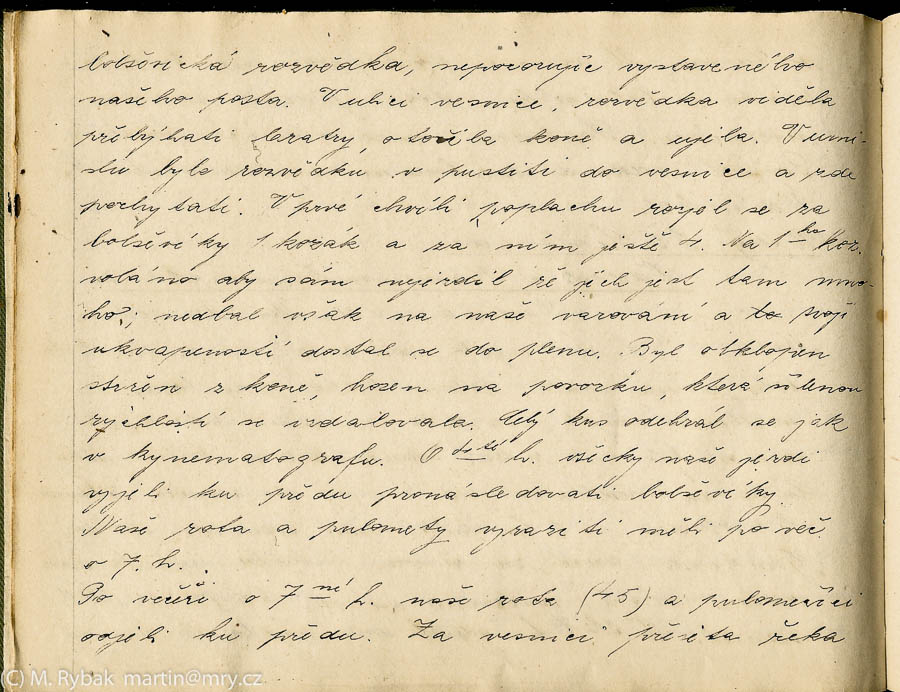 bolšévická rozvědka, nepozorujíc vystaveného
našeho posta. V ulici vesnice, rozvědka viděla
přibýhati bratry, otočila koně a ujela. V úmy-
slu bylo rozvědku v pustiti do vesnice a zde
pochytati. V prvé chvíli poplachu rozjel se za
bolševíky 1 kozák a za ním ještě 4. Na 1ho koz.
voláno aby sám nejezdil že jich jest tam mno-
ho, nedbal však na naše varování a to svojí
ukvapeností dostal se do plenu. Byl obklopen
stržen z koně, hozen na povozku, která
rychlostí se vzdalovala. Celý kus odehrál se jak
v kynematografu. O h. všecky naše jezdci
vyjeli ku předu pronásledovati bolševíky
Naše rota a pulomety vyraziti měli po več.
o 7. h.
Po večeři o 7 mé h. naše rota (45) a pulometčíci
odjeli ku předu. Za vesnicí přesita řeka
(C) M. Rybak martin@mry.cz